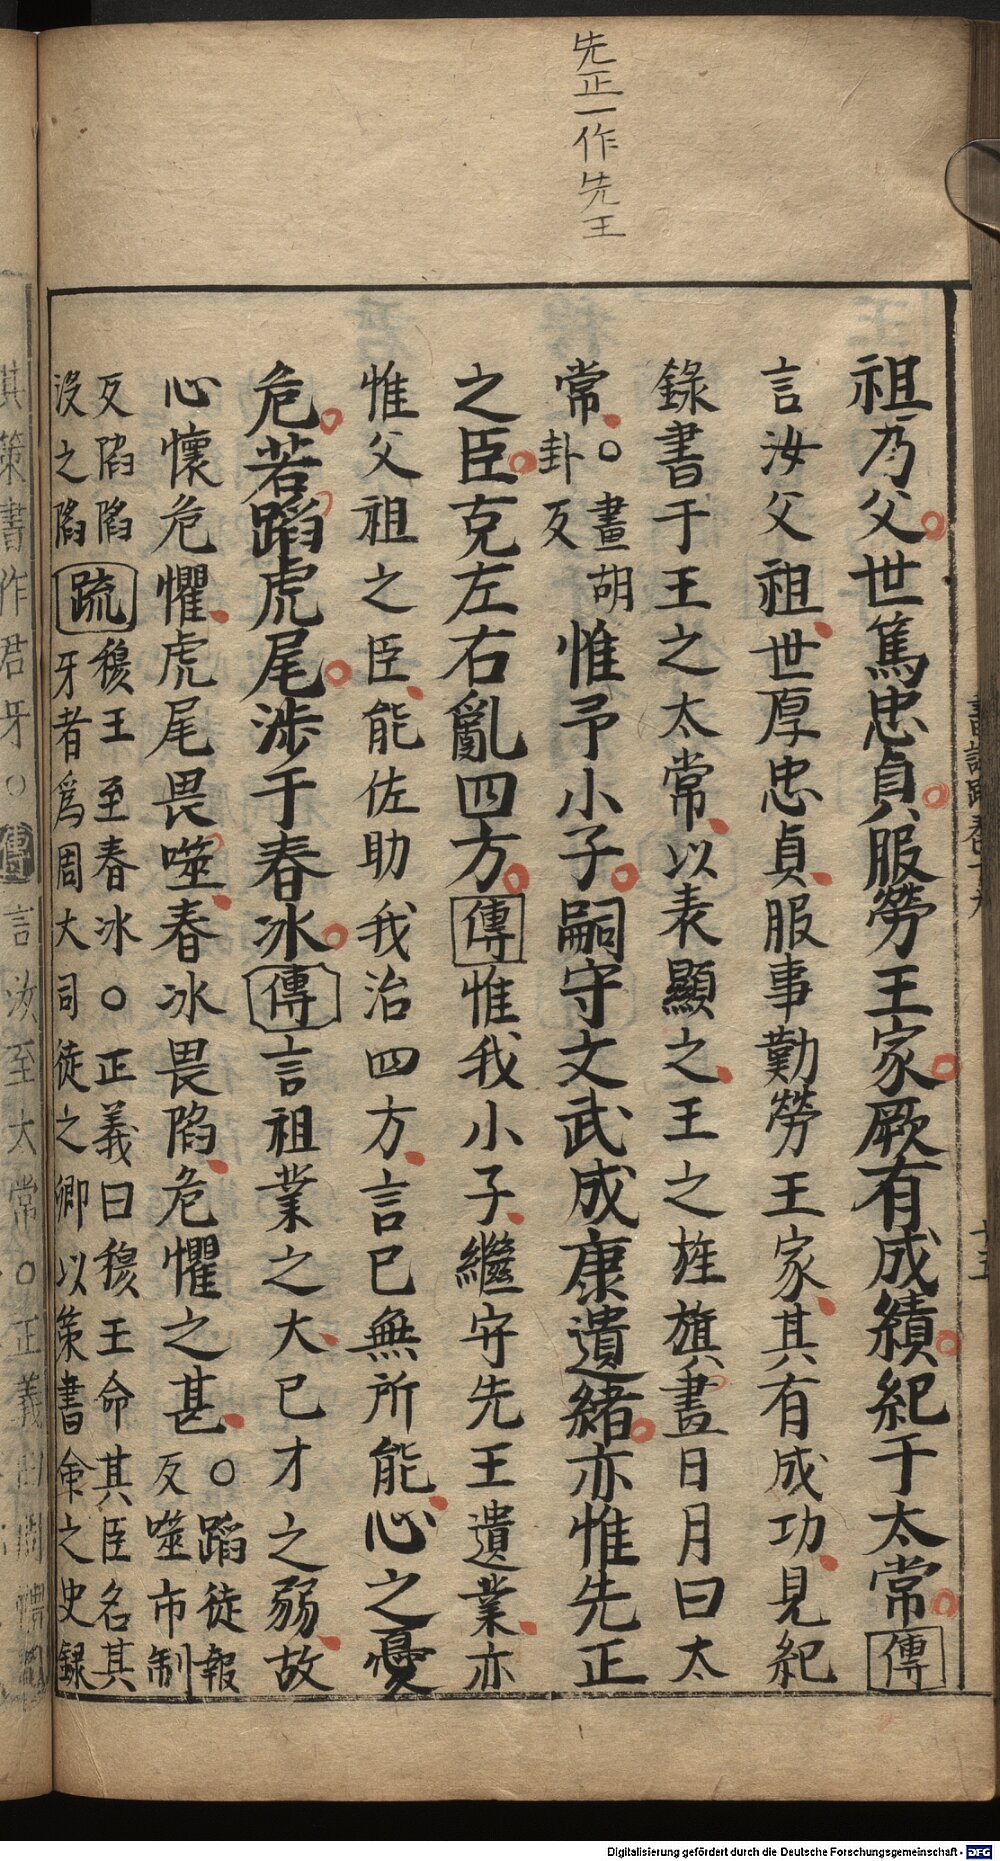 先正一作先王
祖乃父世篤忠貞服勞王家厥有成績紀于太常傳
言汝父祖世厚忠貞服事勤勞王家其有成功見紀
錄書于王之太常以表顯之王之旌旗畫日月曰太
常○畫胡
卦反
惟予小子嗣守文武成康遺緒亦惟先正
之臣克左右亂四方傳惟我小子繼守先王遺業亦
惟父祖之臣能佐助我治四方言已無所能心之憂
危若蹈虎尾涉于春冰傳言祖業之大已才之弱故
心懷危懼虎尾畏噬春冰畏陷危懼之甚
○蹈徒報
反噬市制
反陷陷
沒之陷
疏
穆王至春冰○正義曰穆王命其臣名其
牙者爲周大司徒之卿以策書命之史錄
其策書作君牙○傳言汝至太常○正義曰周禮
Digitalisierung gefördert durch die Deutsche Forschungsgemeinschaft - DFG